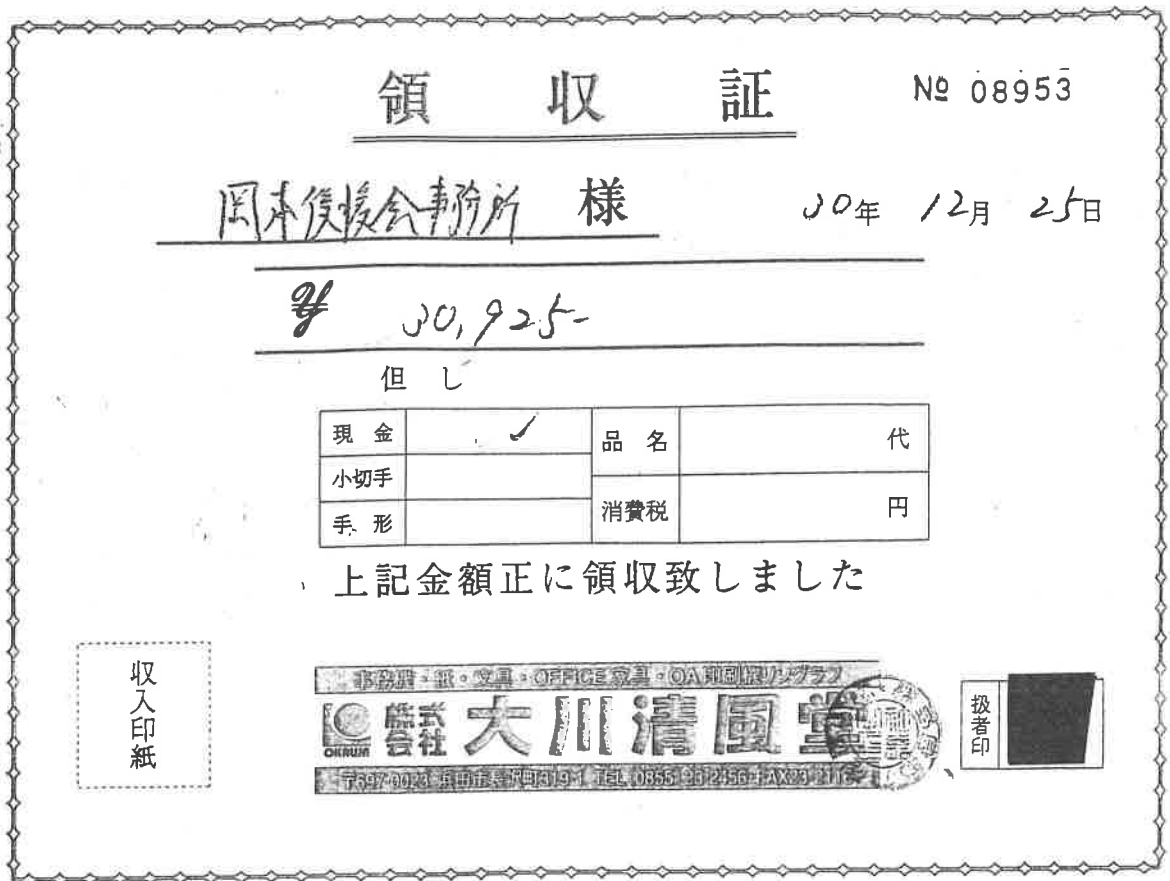 領収証
№ 08953
岡本後援会事務所 様
30年 12月 25日
¥ 30,925-
但し
現金 ✓ 品名 代
小切手
手形 消費税 円
上記金額正に領収致しました
収入印紙
事務機・紙・文具・OFFICE家具・OA印刷機リソグラフ
OKAWA 株式会社 大川清風堂
〒697-0023 浜田市長沢町319-1 TEL 0855
扱者印